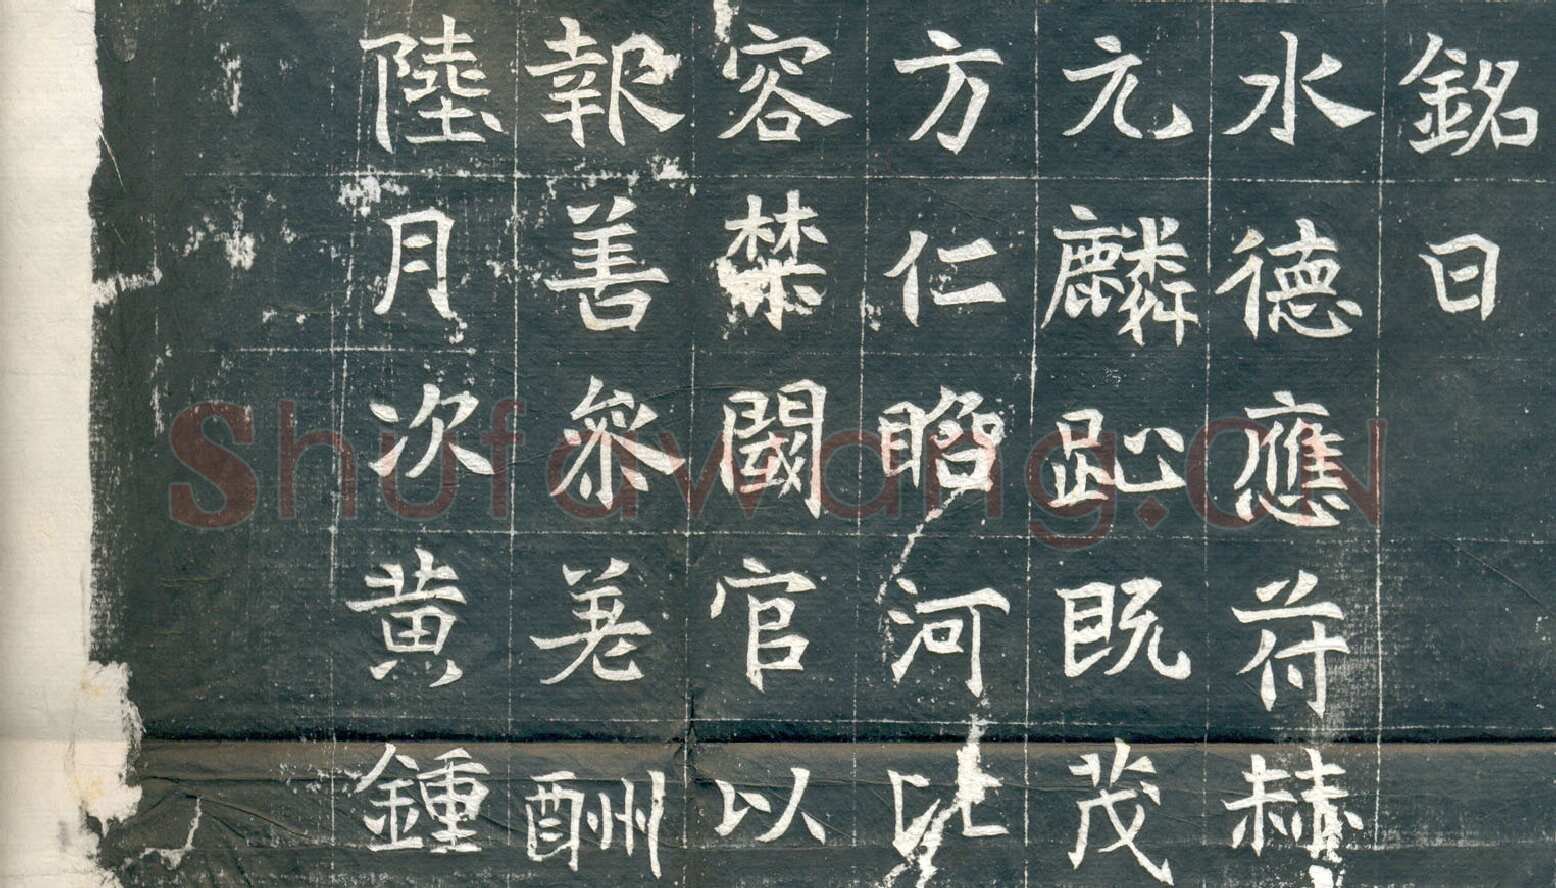 銘曰
水德應苻赫
亢麟趾既茂
方仁河比
容禁閾官以
報善叅差酬
陸月次黄鍾
Shufawang.CN